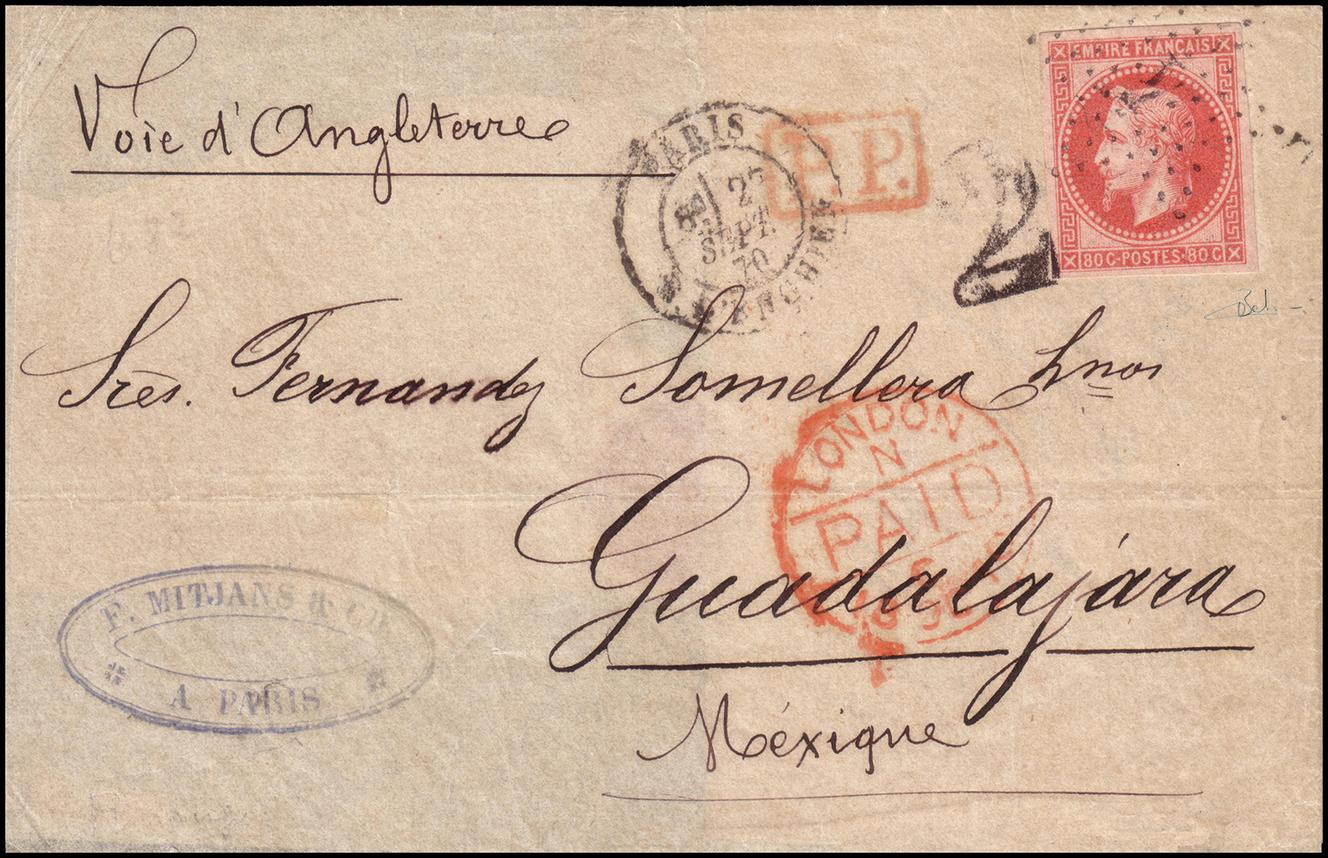 Voie d'Angleterre
PARIS
R. D'ENGHIEN
8E
27
SEPT.
70
P.P.
EMPIRE FRANCAIS
80 C·POSTES·80 C
2
Srès. Fernandez Somellera hnos
LONDON
N
PAID
Guadalajára
Méxique
F. MITJANS & CO
A PARIS